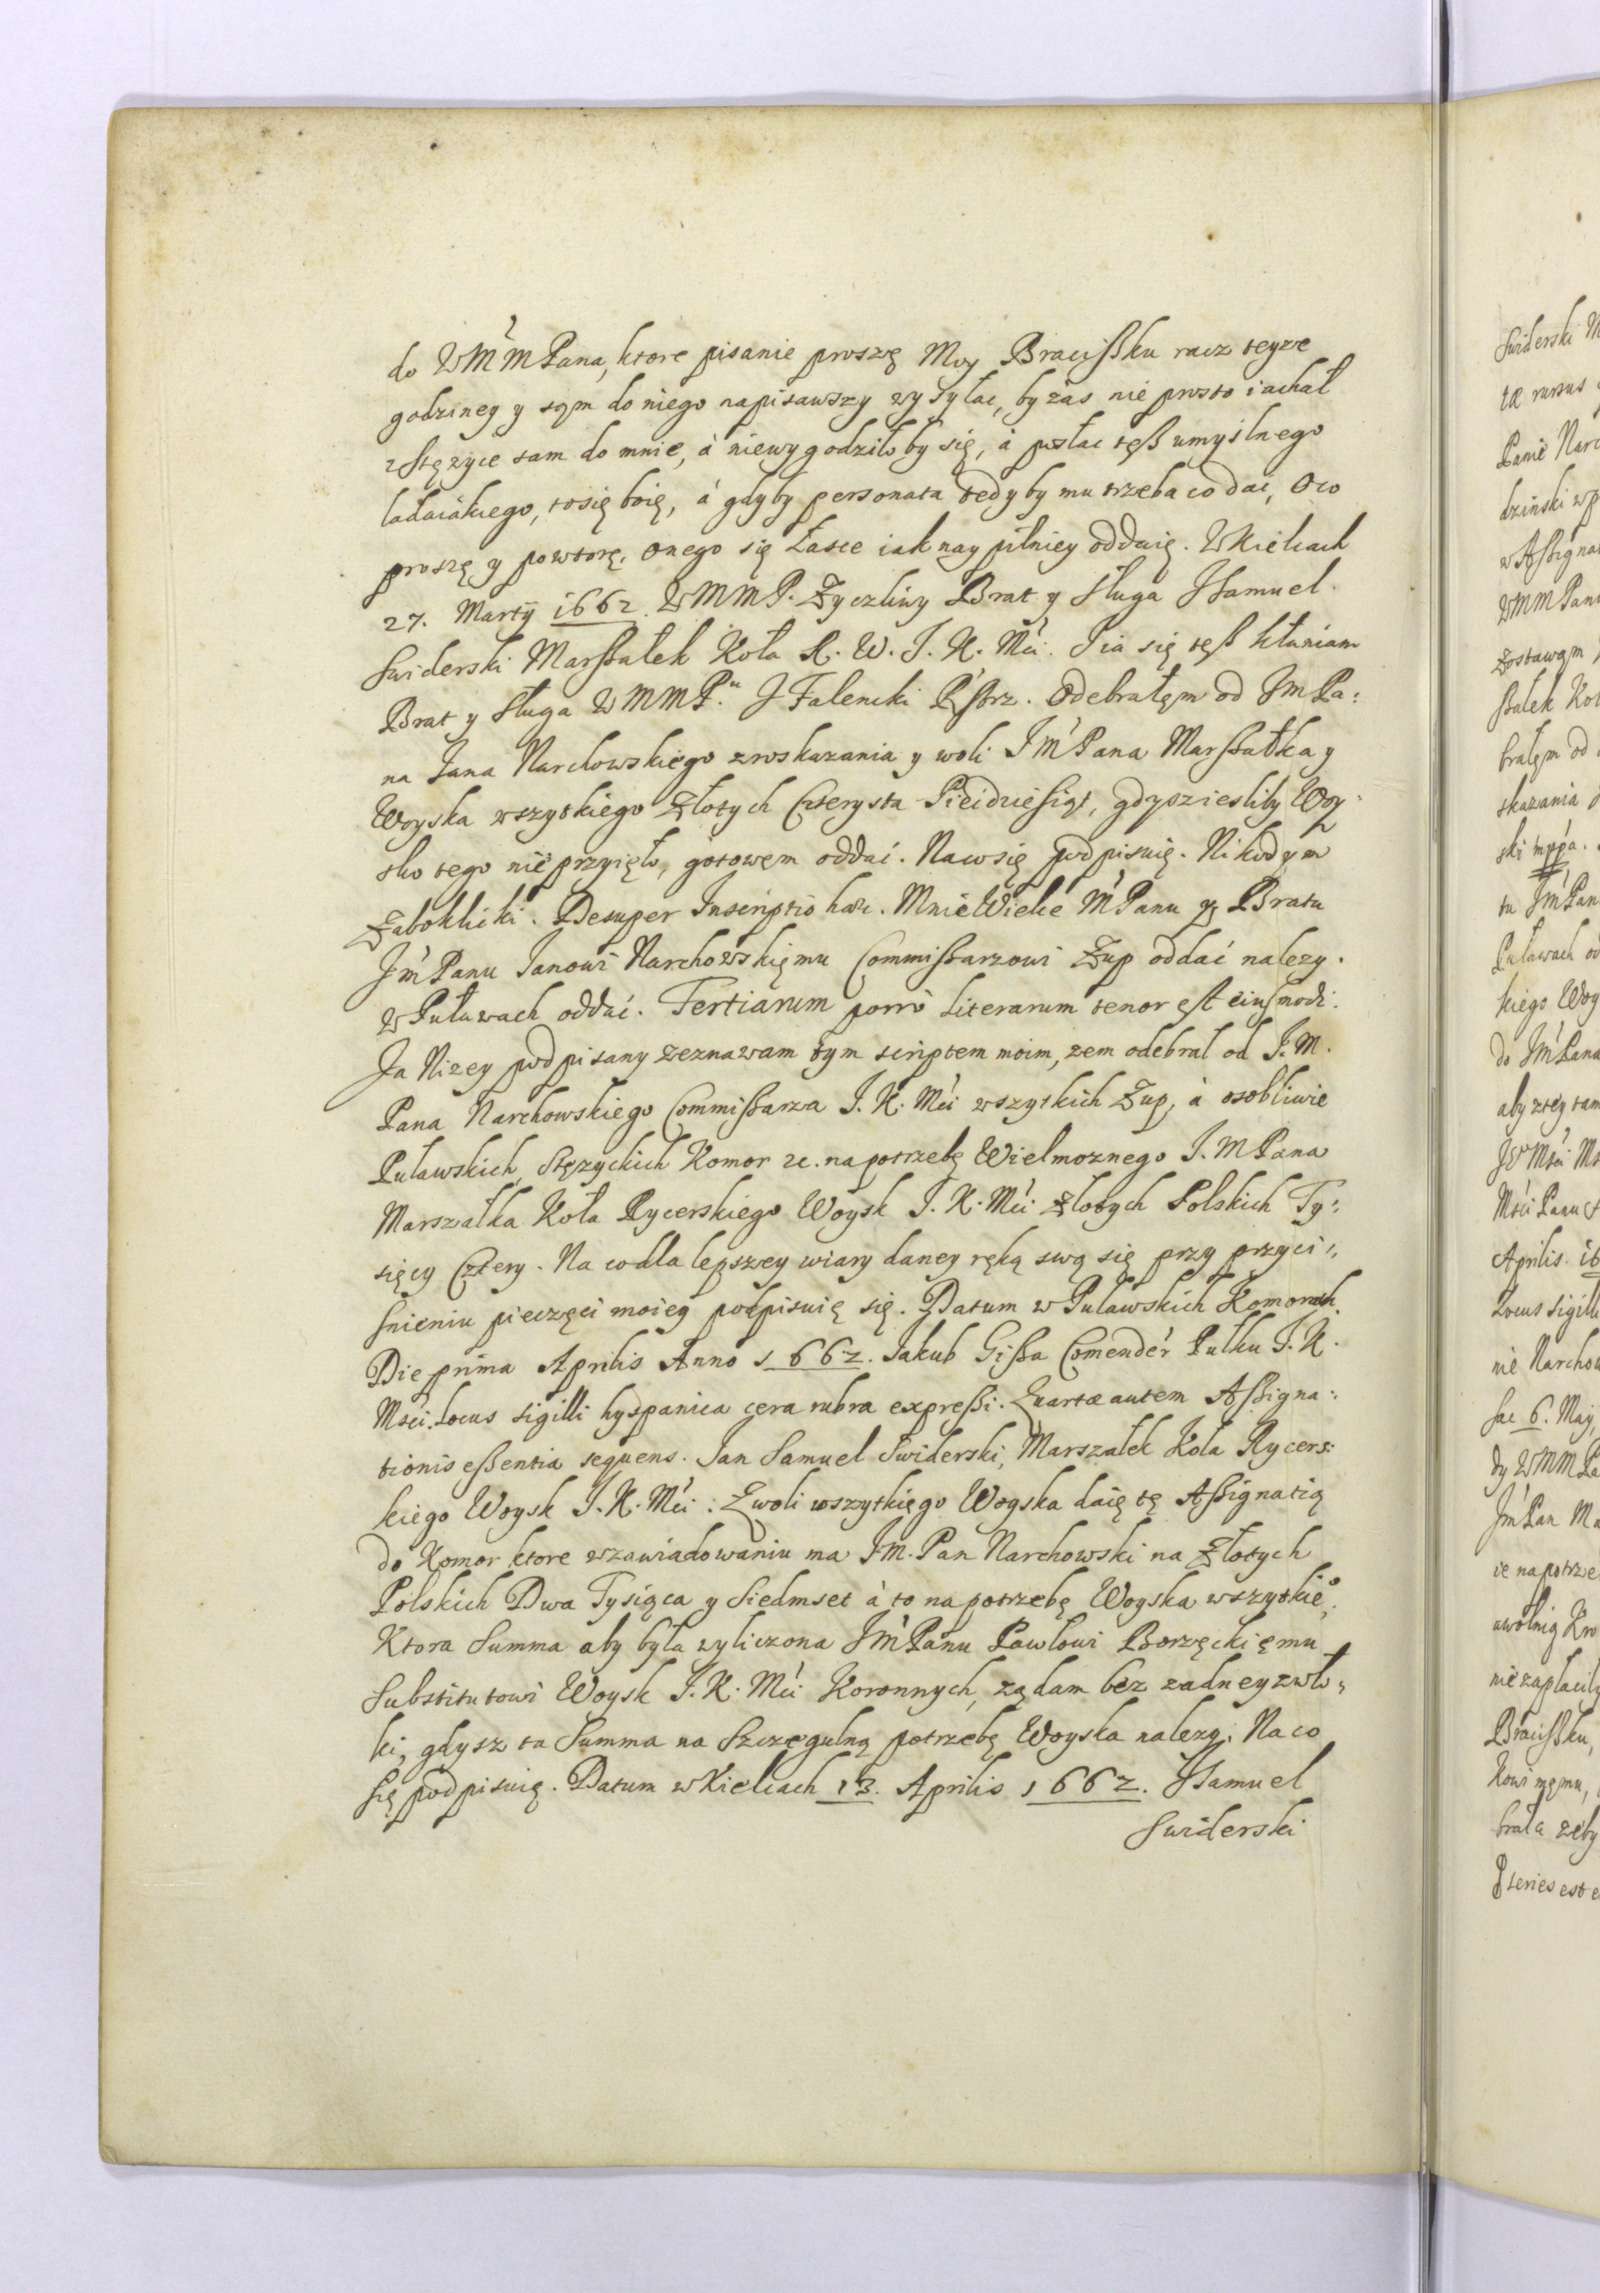 do WMM Pana, ktore pisanie proszę Moy Braciszku racz teyze
godziney y sąm do niego napisawszy wysyłac, by zas nie prosto iachał
z Stęzyce sam do mnie, á niewygodziłoby się, á posłac tęß umyślnego
ladaiákiego, to się boię, á gdyby personata tedyby mu trzeba co dac, o co
proszę y powtorę, onego się Łasce iak naypilniey oddaię. W Kielcach
27. Martÿ 1662. WMMP. Zyczliwy Brat y Sługa JSamuel
Swiderski Marßałek Koła R. W. J. K. Mći. J ia się tęß kłaniam
Brat y Sługa WMMP. J Falencki Pßrz. Odebrałęm od JmPa:
na Jana Narchowskiego z roskazania y woli Jm̃ Pana Marßałka y
Woyska wszytkiego Złotych Czterysta Pieidziesiąt, gdyz iesliby Woy:
sko tego nie przyięło, gotowęm oddać. Na co się podpisuię. Nikodÿm
Zaboklicki. Desuper Inscriptio haec. Mnie Wielce M̃ Panu y Bratu
Jm̃ Panu Janowi Narchowskięmu Commißarzowi Zup oddać nalezy.
w Puławach oddać. Tertiarum porro literarum tenor est eiusmodi.
Ja Nizey podpisany zeznawam tym scriptem moim, zem odebrał od J. M.
Pana Narchowskiego Commißarza J. K. Mći wszytkich Zup, à osobliwie
Puławskich, Stęzyckich Komor &c. na potrzebę Wielmoznego J. M Pana
Marszałka Koła Rycerskiego Woysk J. K. Mći. Złotych Polskich Ty:
sięcy Cztery. Na co dla lepszey wiary daney ręką swą się przy przyci:
snieniu pieczęci moiey podpisuię się. Datum w Puławskich Komorach.
Die prima Aprilis Anno 1662. Jakub Gißa Comendér Pułku J. K.
Msci. Locus sigilli hyspanica cera rubra expreßi. Quartæ autem Aßigna:
tionis eßentia sequens. Jan Samuel Swiderski, Marszałek Koła Rycers:
kiego Woysk J. K. Mći. Z woli wszytkięgo Woyska daię tę Aßignatią
do Komor ktore w zawiadowaniu ma Jm. Pan Narchowski na Złotych
Polskich Dwa Tysiąca y Siedmset à to na potrzebę Woyska wszytkieᵒ.
Ktora Summa aby była wyliczona Jm̃ Panu Pawłowi Borzęckięmu
Substitutowi Woysk J. K. Mći Koronnych, ządam bez zadney zwło:
ki, gdysz ta Summa na szczegulną potrzebę Woyska nalezy. Na co
się podpisuię. Datum w Kielcach 13. Aprilis 1662. JSamuel
Swiderski